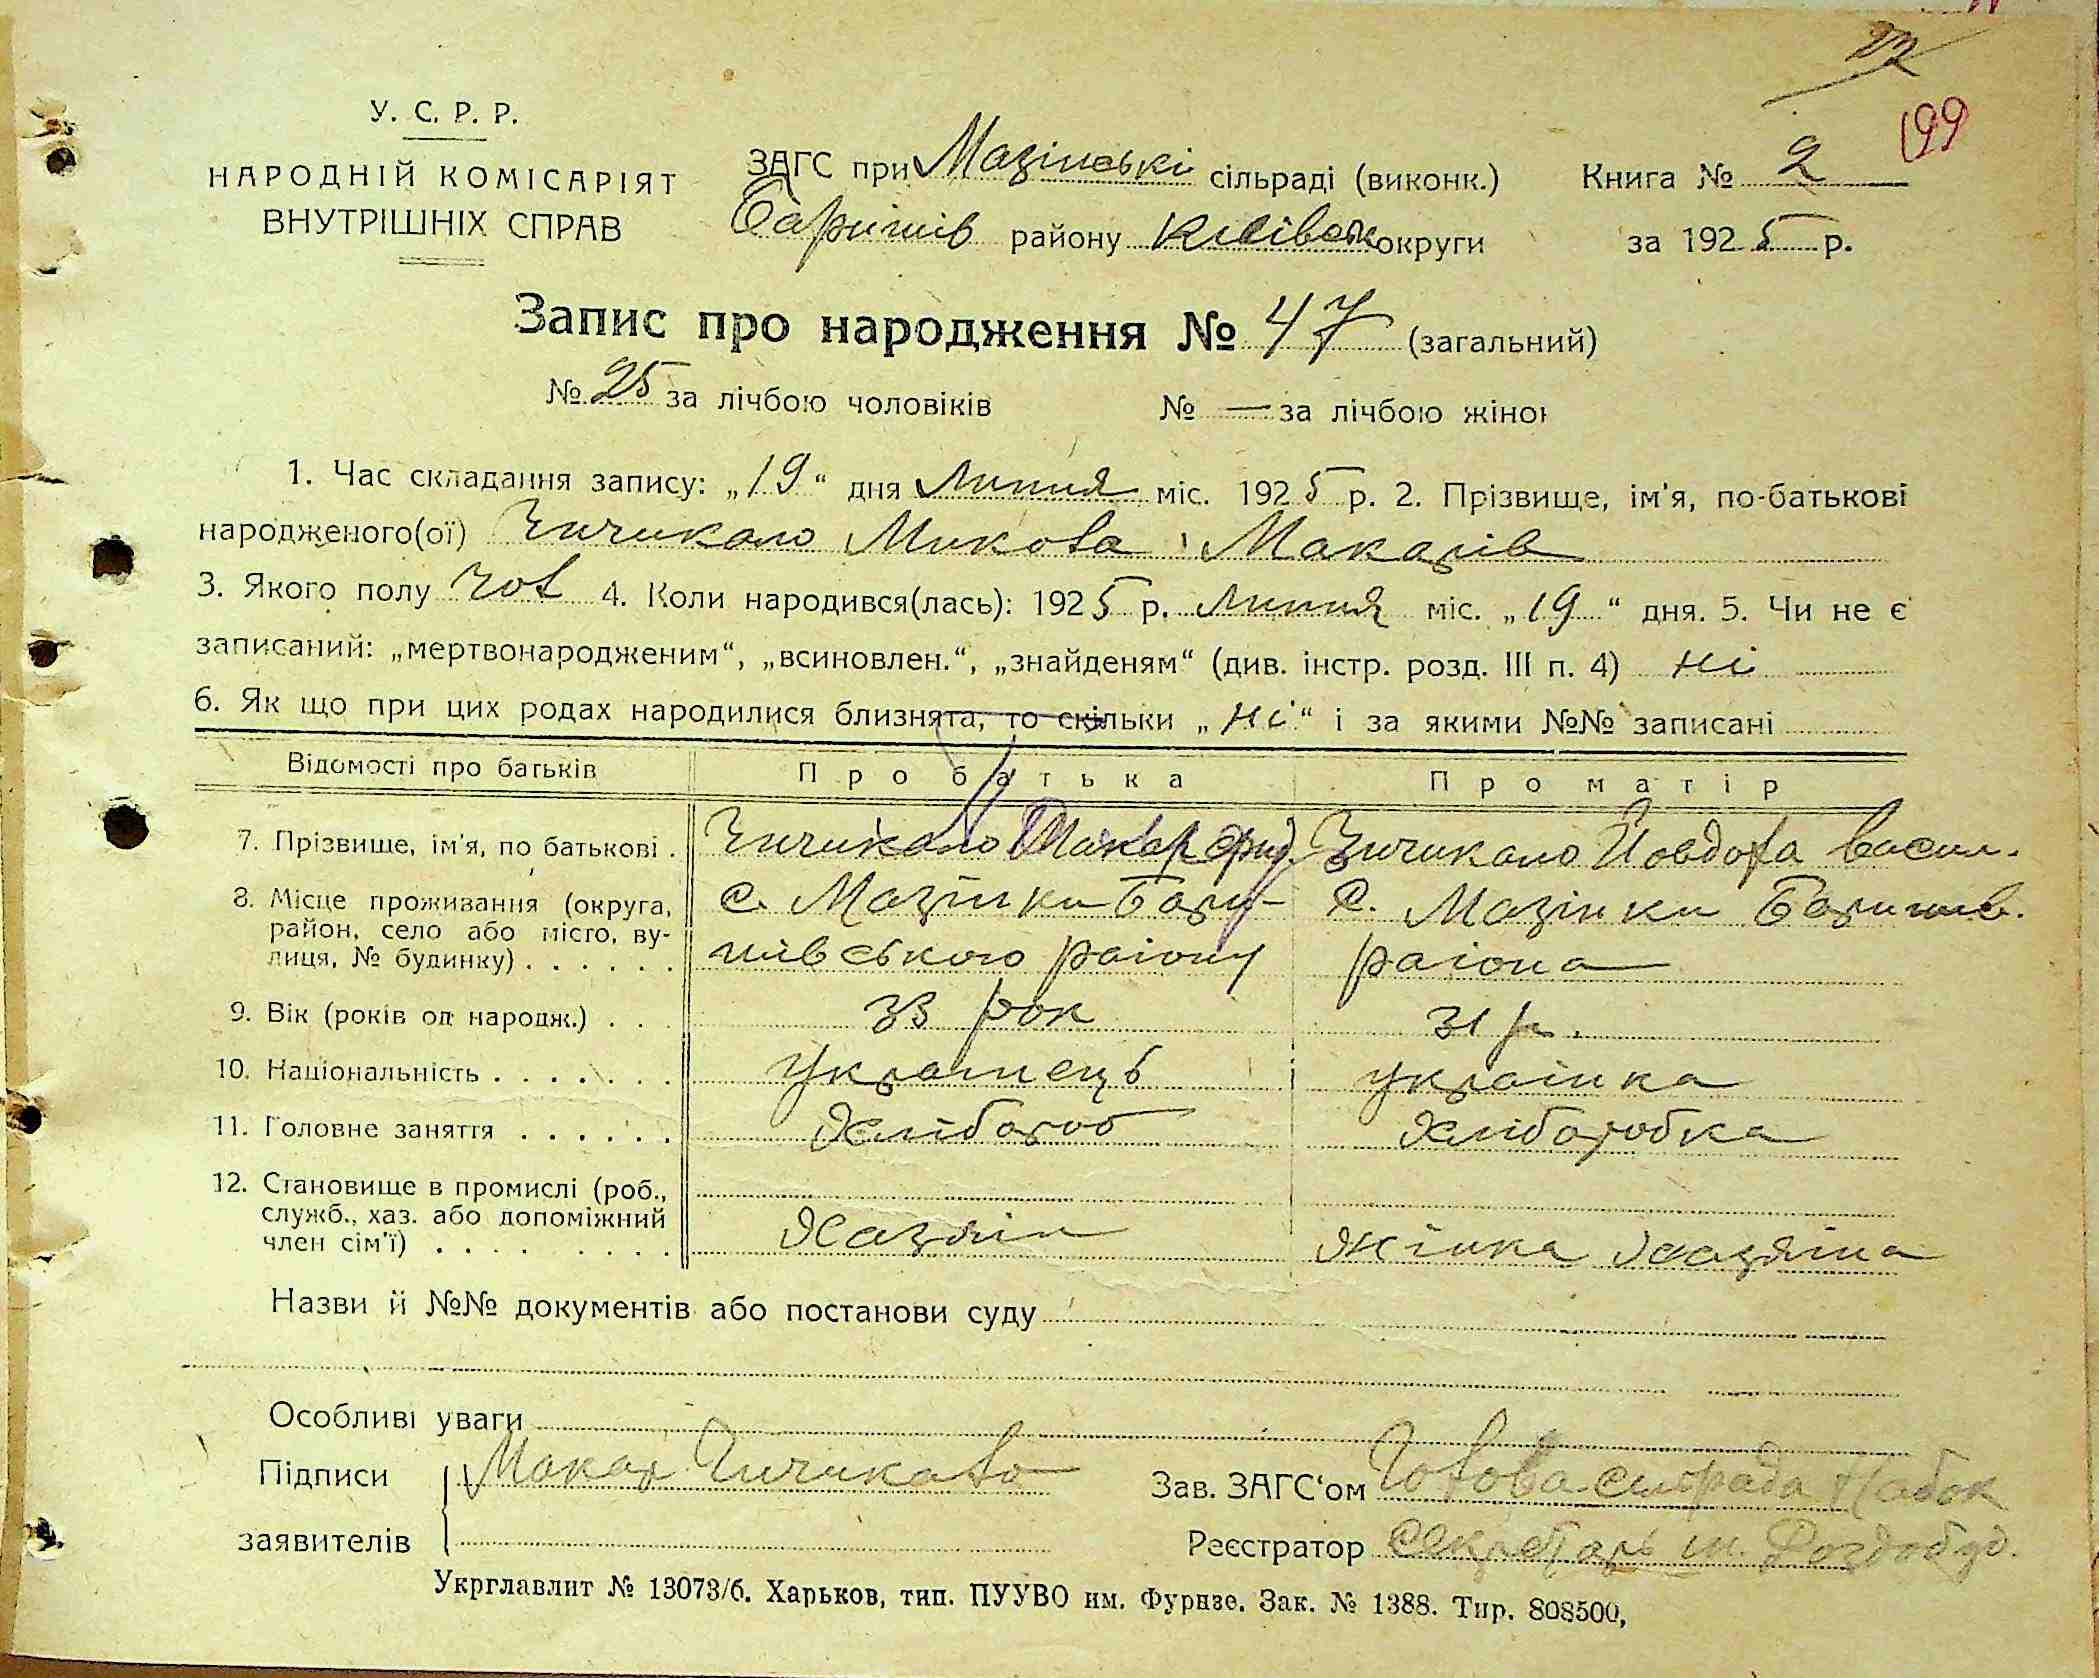 199
У. С. Р. Р.
НАРОДНІЙ КОМІСАРІЯТ
ВНУТРІШНІХ СПРАВ
ЗАГС при Мазінські сільраді (виконк.)
Баришів району Київськ округи
Книга № 2
за 1925 р.
Запис про народження № 47 (загальний)
№ 25 за лічбою чоловіків № — за лічбою жінок
1. Час складання запису: „19“ дня Липня міс. 1925 р. 2. Прізвище, ім'я, по-батькові
народженого(ої) Чичикало Микола Макарів
3. Якого полу чол 4. Коли народився(лась): 1925 р. Липня міс. „19“ дня. 5. Чи не є
записаний: „мертвонародженим“, „всиновлен.“, „знайденям“ (див. інстр. розд. III п. 4) ні
6. Як що при цих родах народилися близнята, то скільки „ні“ і за якими №№ записані
Відомості про батьків Про батька Про матір
7. Прізвище, ім'я, по батькові . Чичикало Макар Чичикало Йовдоха Васил.
8. Місце проживання (округа, район, село або місто, вулиця, № будинку) . . . . . .
с. Мазінки Бари-
шівського району
с. Мазінки Баришів.
раіона
9. Вік (років од народж.) . . . 33 рок 31 р.
10. Національність . . . . . . . Украінець украінка
11. Головне заняття . . . . . . Хлібороб Хліборобка
12. Становище в промислі (роб., служб., хаз. або допоміжний член сім'ї) . . . . . . . . .
Хазяін Жінка Хазяіна
Назви й №№ документів або постанови суду
Особливі уваги
Підписи Макар Чичикало
заявителів
Зав. ЗАГС‘ом Голова сільради Набок
Реєстратор Секретарь
Укрглавлит № 13073/б. Харьков, тип. ПУУВО им. Фурнзе. Зак. № 1388. Тир. 808500,